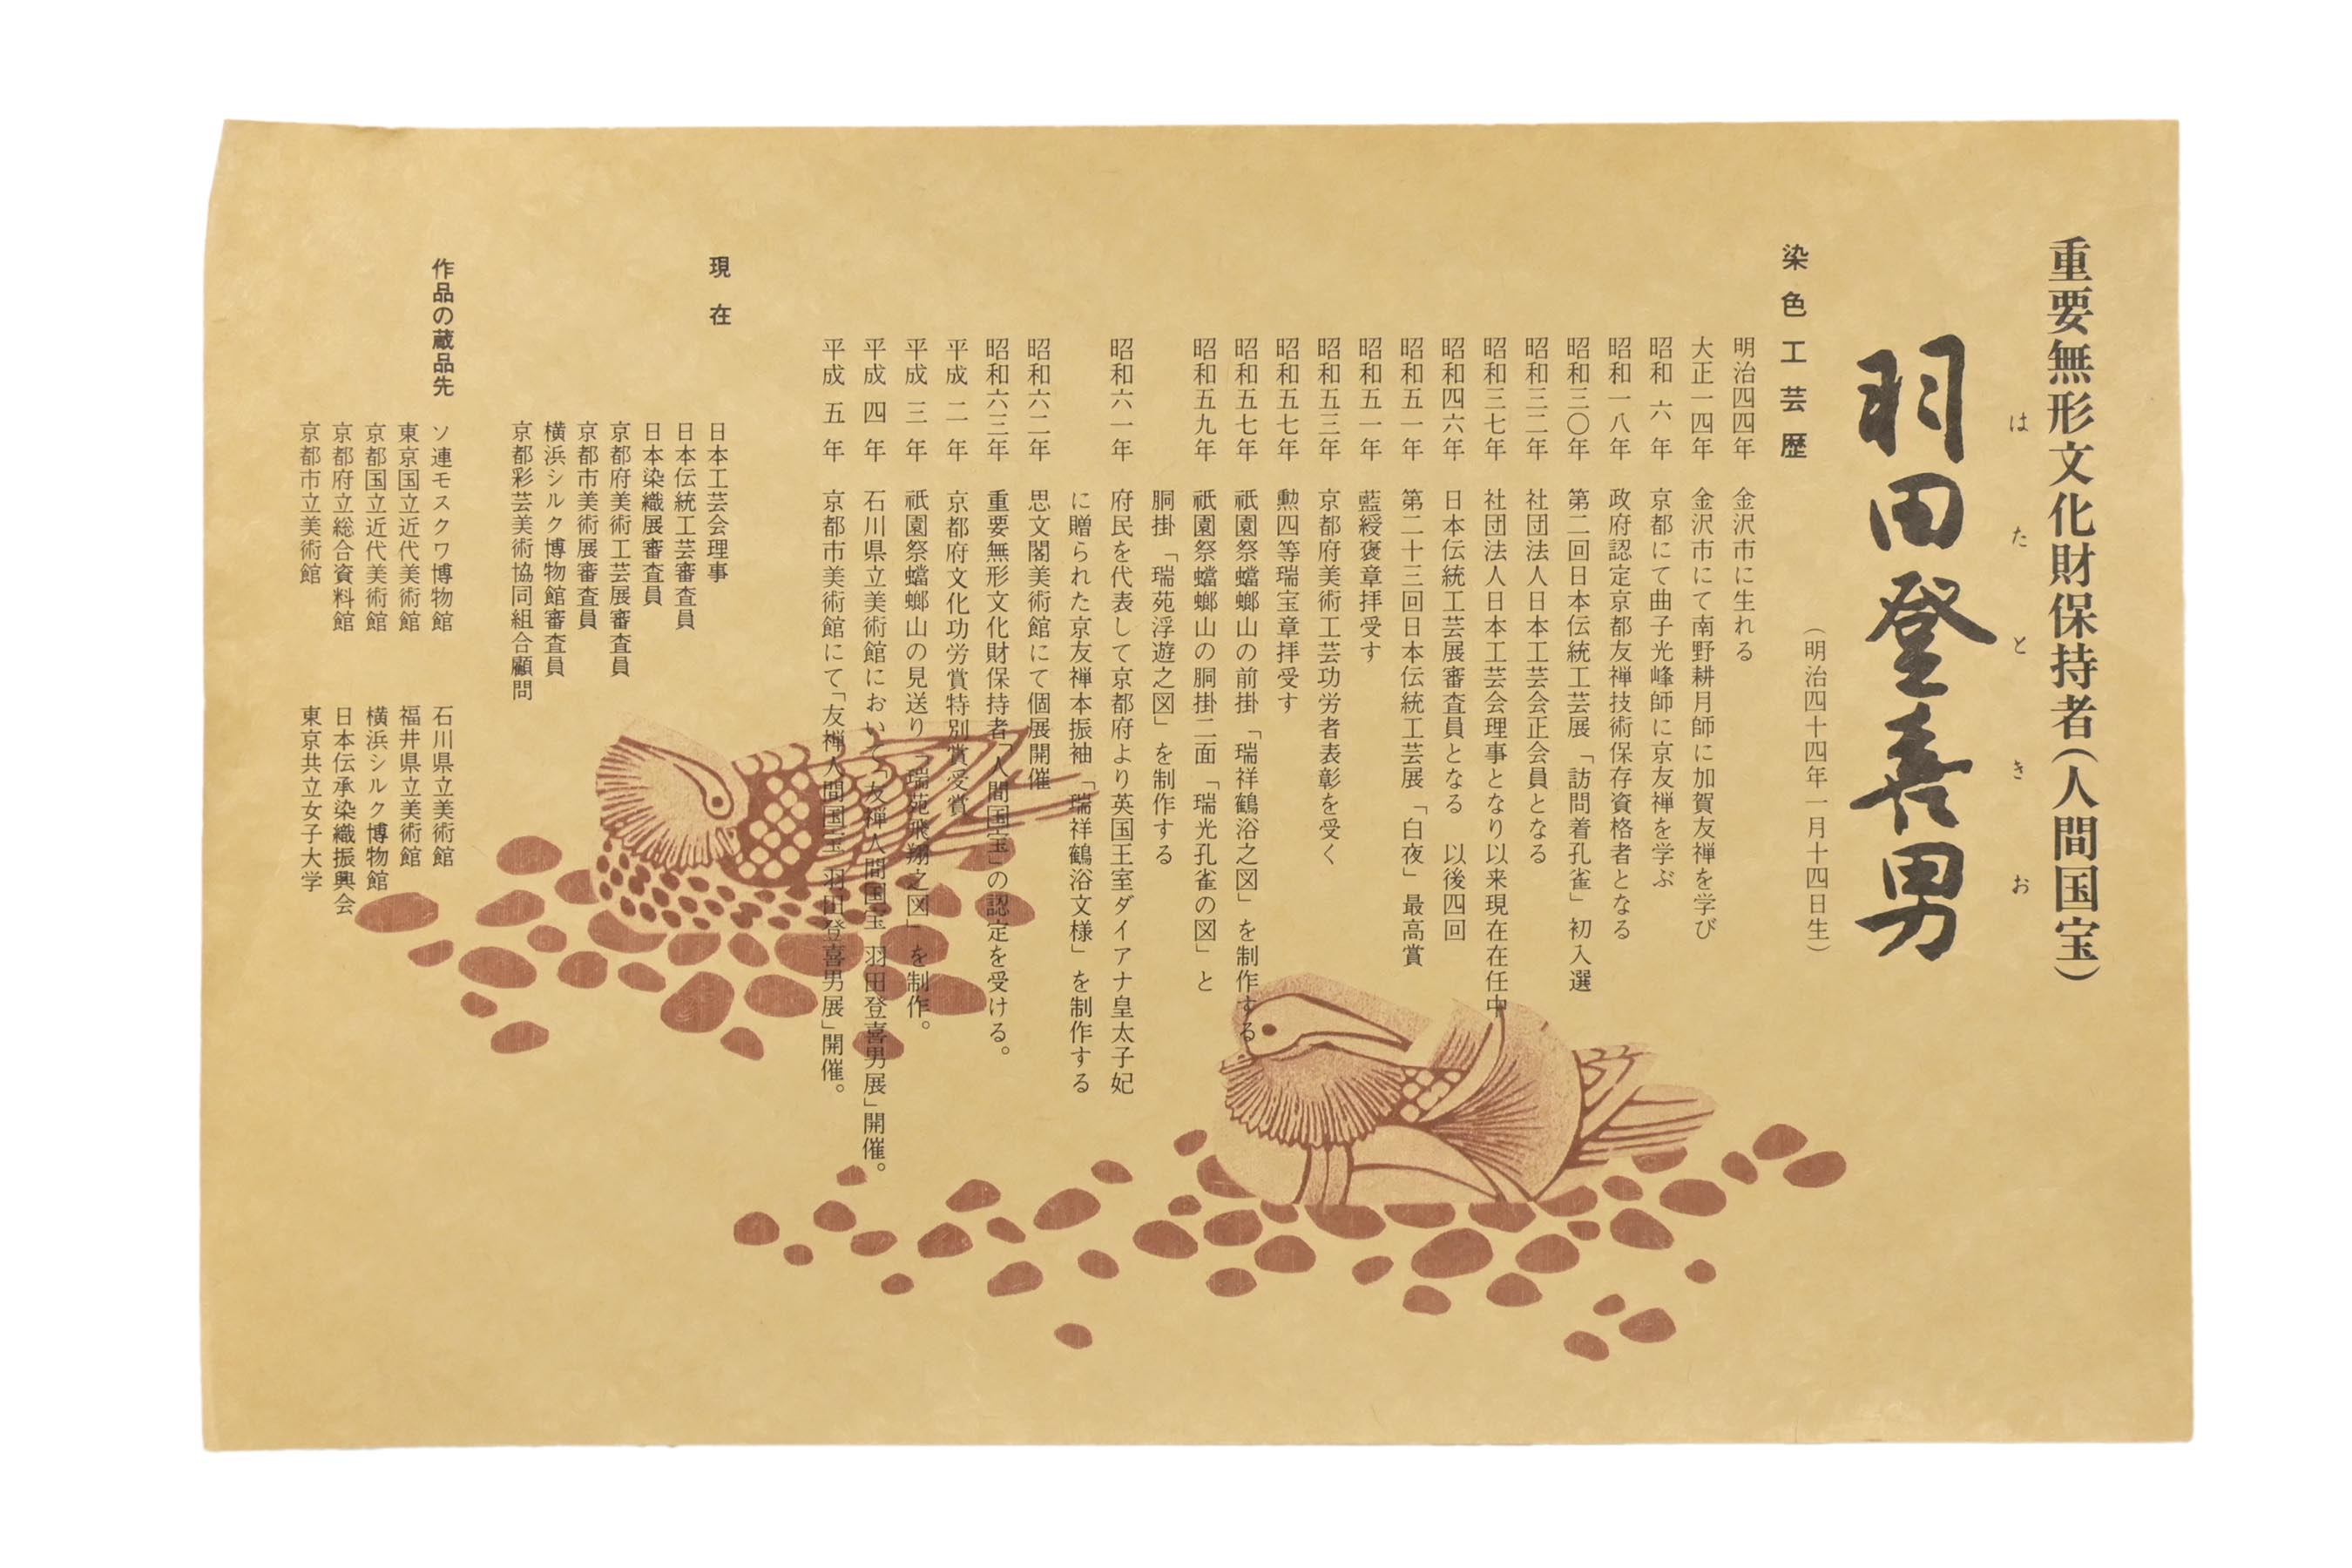 重要無形文化財保持者（人間国宝）
はたときお
羽田登喜男
（明治四十四年一月十四日生）
染色工芸歴
明治四四年　金沢市に生れる
大正一四年　金沢市にて南野耕月師に加賀友禅を学び
昭和六年　京都にて曲子光峰師に京友禅を学ぶ
昭和一八年　政府認定京都友禅技術保存資格者となる
昭和三〇年　第二回日本伝統工芸展「訪問着孔雀」初入選
昭和三二年　社団法人日本工芸会正会員となる
昭和三七年　社団法人日本工芸会理事となり以来現在在任中
昭和四六年　日本伝統工芸展審査員となる　以後四回
昭和五一年　第二十三回日本伝統工芸展「白夜」最高賞
昭和五一年　藍綬褒章拝受す
昭和五三年　京都府美術工芸功労者表彰を受く
昭和五七年　勲四等瑞宝章拝受す
昭和五七年　祇園祭蟷螂山の前掛「瑞祥鶴浴之図」を制作する
昭和五九年　祇園祭蟷螂山の胴掛二面「瑞光孔雀の図」と
胴掛「瑞苑浮遊之図」を制作する
昭和六一年　府民を代表して京都府より英国王室ダイアナ皇太子妃
に贈られた京友禅本振袖「瑞祥鶴浴文様」を制作する
昭和六二年　思文閣美術館にて個展開催
昭和六三年　重要無形文化財保持者「人間国宝」の認定を受ける。
平成二年　京都府文化功労賞特別賞受賞
平成三年　祇園祭蟷螂山の見送り「瑞苑飛翔之図」を制作。
平成四年　石川県立美術館において「友禅人間国宝　羽田登喜男展」開催。
平成五年　京都市美術館にて「友禅人間国宝　羽田登喜男展」開催。
現在
日本工芸会理事
日本伝統工芸審査員
日本染織展審査員
京都府美術工芸展審査員
京都市美術展審査員
横浜シルク博物館審査員
京都彩芸美術協同組合顧問
作品の蔵品先
ソ連モスクワ博物館　石川県立美術館
東京国立近代美術館　福井県立美術館
京都国立近代美術館　横浜シルク博物館
京都府立総合資料館　日本伝承染織振興会
京都市立美術館　東京共立女子大学